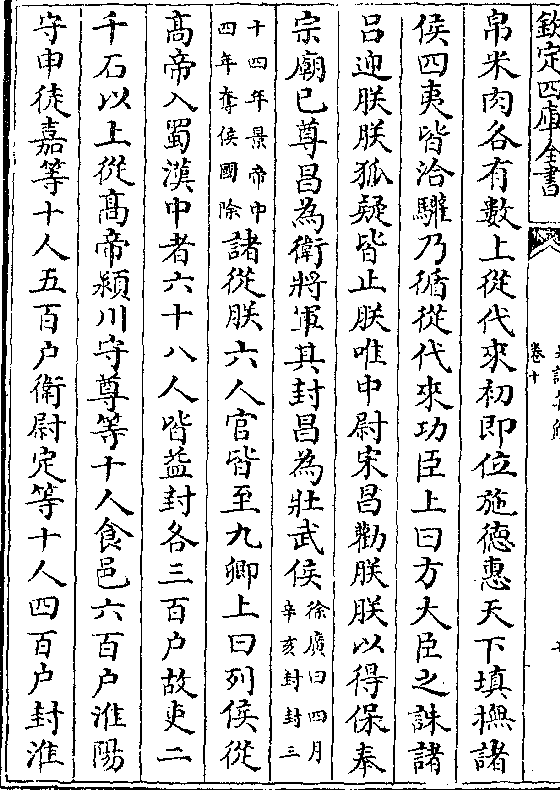 欽定四庫全書
卷十
帛米肉各有數上從代來初即位施德惠天下填撫諸
侯四夷皆洽驩乃循從代來功臣上曰方大臣之誅諸
吕迎朕朕狐疑皆止朕唯中尉宋昌勸朕朕以得保奉
宗廟已尊昌為衛將軍其封昌為壯武侯徐廣曰四月辛亥封封三
十四年景帝中四年奪侯國除諸從朕六人官皆至九卿上曰列侯從
髙帝入蜀漢中者六十八人皆益封各三百户故吏二
千石以上從髙帝潁川守尊等十人食邑六百户淮陽
守申徒嘉等十人五百户衛尉定等十人四百户封淮